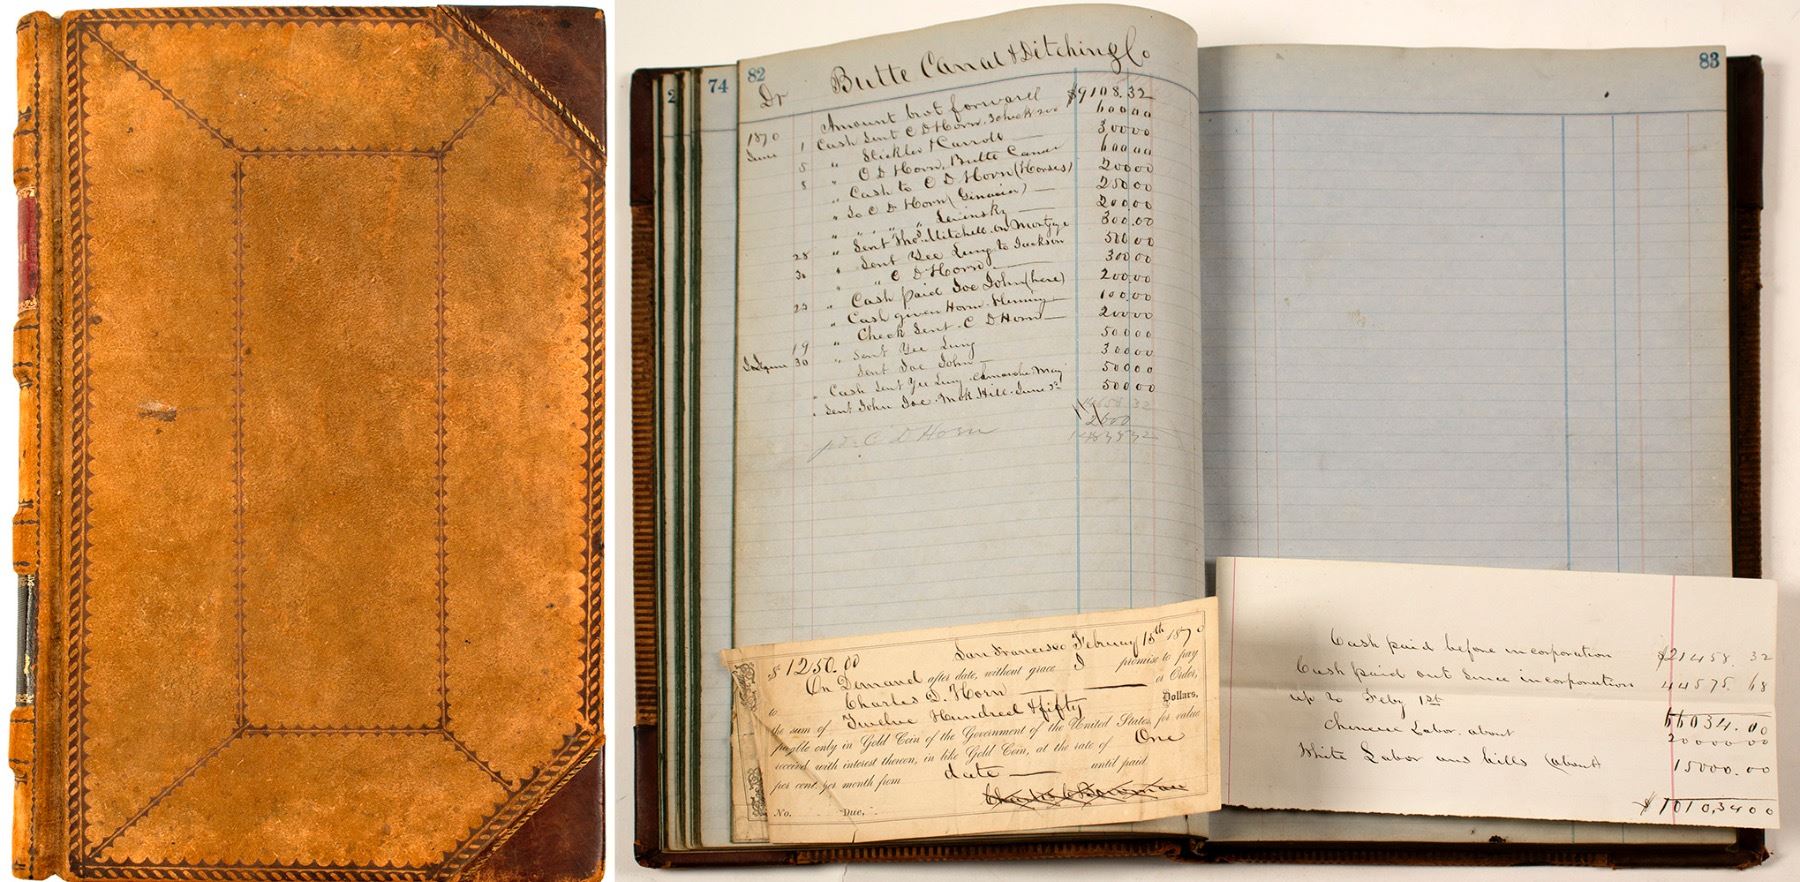 74
82
83
Butte Canal & Ditching Co
Dr
Amount brot forward $9108.32
1870
June 1 Cash Sent C D Horn 600 00
" Stickler & Carroll 300 00
5 " C D Horn, Butte 600 00
8 " Cash to C D Horn (Horses) 200 00
" To C D Horn 250 00
" " " " Levinsky 200 00
" Sent Thos. Mitchell on Mortgage 300.00
28 " Sent Yee Lung to Jackson 500 00
30 " C D Horn 300 00
" Cash paid Joe John (here) 200 00
25 " Cash given Horn 100.00
" Check Sent C D Horn 200 00
19 " Sent Yee Lung 500 00
June 30 Sent Joe John 300 00
" Cash Sent Yee Lung May 500 00
" Sent John Joe Mok Hill June 500 00
14658.32
C D Horn
$ 1250.00 San Francisco February 15th 1870
On Demand after date, without grace I promise to pay
to Charles D. Horn or Order,
the sum of Twelve Hundred & fifty Dollars,
payable only in Gold Coin of the Government of the United States, for value
received with interest thereon, in like Gold Coin, at the rate of One
per cent. per month from date until paid
No. Due,
Cash paid before incorporation $21458.32
Cash paid out Since incorporation 44575.68
up to Feby 1st
66034.00
Chinese Labor about 20000.00
White Labor and bills (about 15000.00
$101034 00